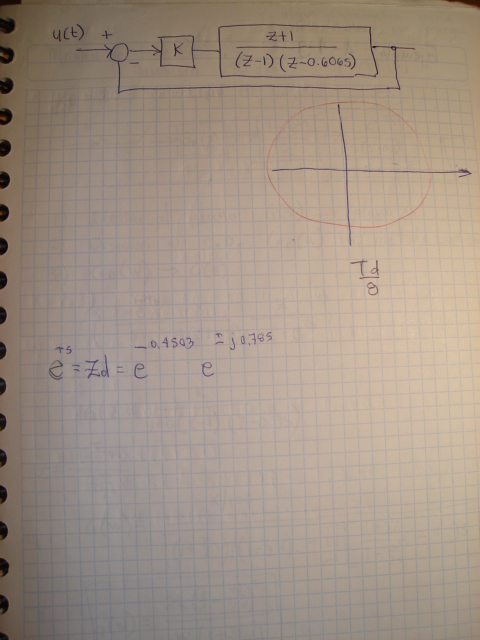 u(t) + - K z+1
(z-1)(z-0.6065)
Td
8
e^Ts = Zd = e^-0.4803 e^±j0.785